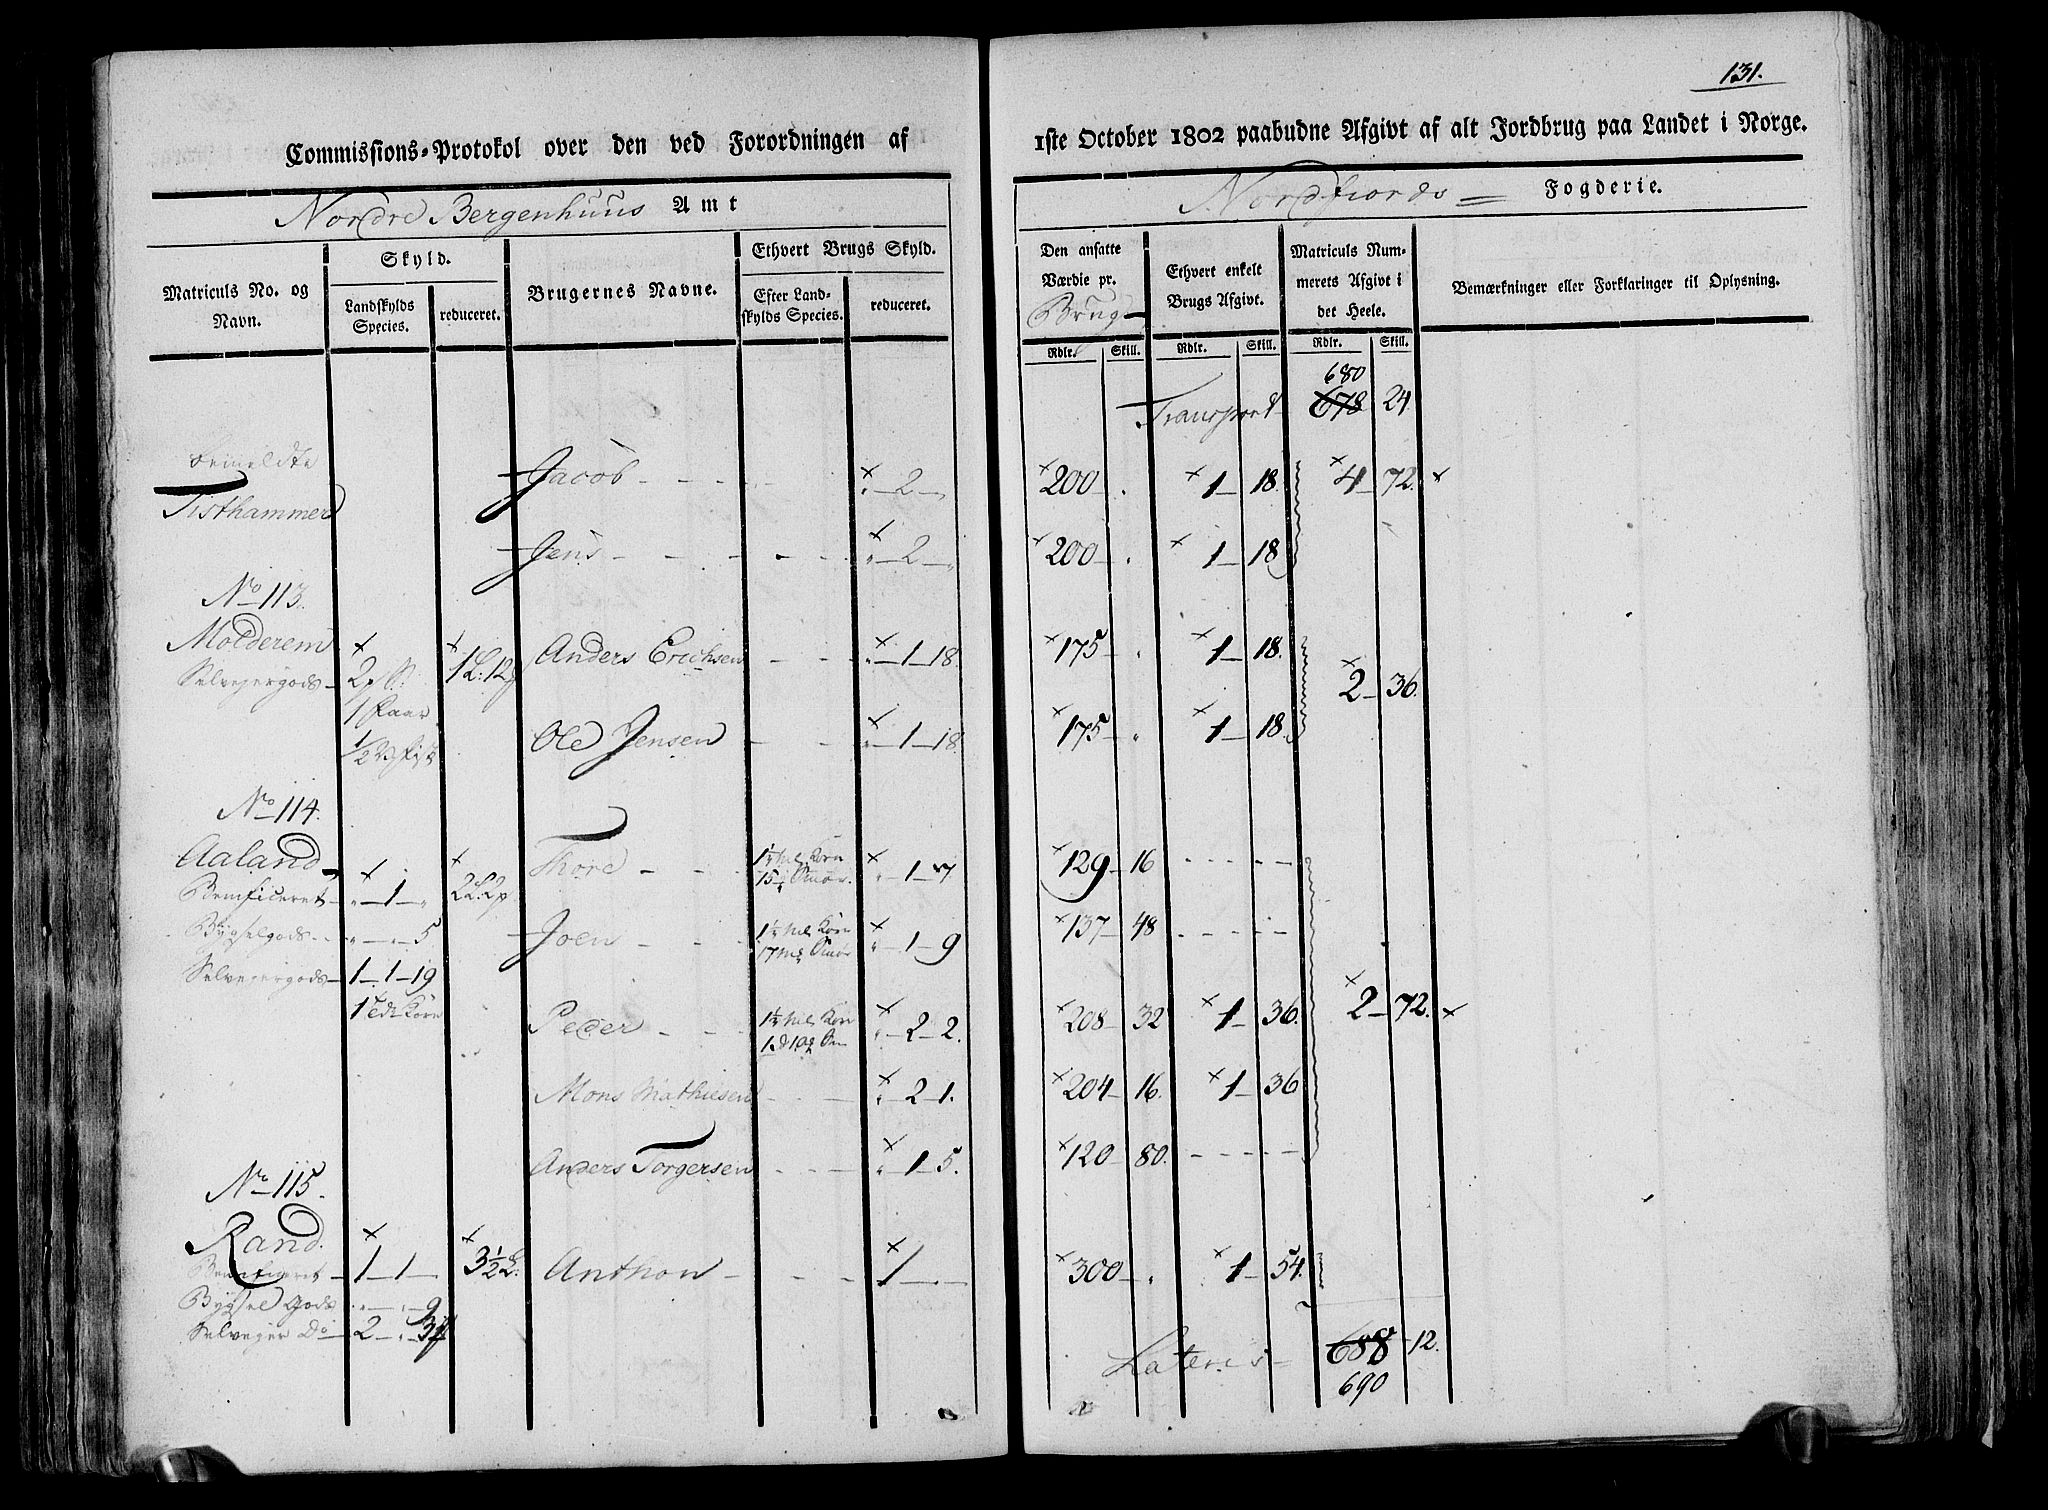 131.
Commissions-Protokol over den ved Forordningen af
1ste October 1802 paabudne Afgivt af alt Jordbrug paa Landet i Norge.
Nordre Bergenhuus Amt
Nordfiords Fogderie.
Matriculs No. og Navn.
Skyld.
Landskylds Species.
reduceret.
Brugernes Navne.
Ethvert Brugs Skyld.
Efter Landskylds Species.
reduceret.
Den ansatte Værdie pr. Brug
Ethvert enkelt Brugs Afgivt.
Matriculs Nummerets Afgivt i det Heele.
Bemærkninger eller Forklaringer til Oplysning.
Rdlr. Skill. Rdlr. Skill. Rdlr. Skill.
680
Transport 678 24
bemeldte
Tisthammer
Jacob - - - 2 - 200 - 1 - 18. 4 - 72.
Jens - - - 2 - 200 - 1 - 18
No 113.
Molderem 1 L: 12 Anders Erichsen - - 1 - 18. 175 - 1 - 18.
Selvejergods - 2 2 - 36.
1 faar
1/2 V fisk Ole Jensen - - 1 - 18. 175 - 1 - 18.
No 114.
Aaland 2 L: 2 Thore - - 1 - 7 129 - 16 - - -
Beneficeret - 1 -
Bygselgods - 5 Joen - - 1 - 9 137 - 48 - - -
Selvejergods - 1 - 1 - 19
Peder - - 2 - 2. 208 - 32 1 - 36. 2 - 72.
Mons Mathiesen - - 2 - 1. 204 - 16. 1 - 36
Anders Torgersen - - 1 - 5. 120 - 80. - - -
No 115.
Rand.
Beneficeret - 1 - 1 - 3 1/2 L. Anthon - - - 1 - 300 - 1 - 54.
Bygsel Gods - 9
Selvejer Do - 2 -
Lateris 688 - 12.
690